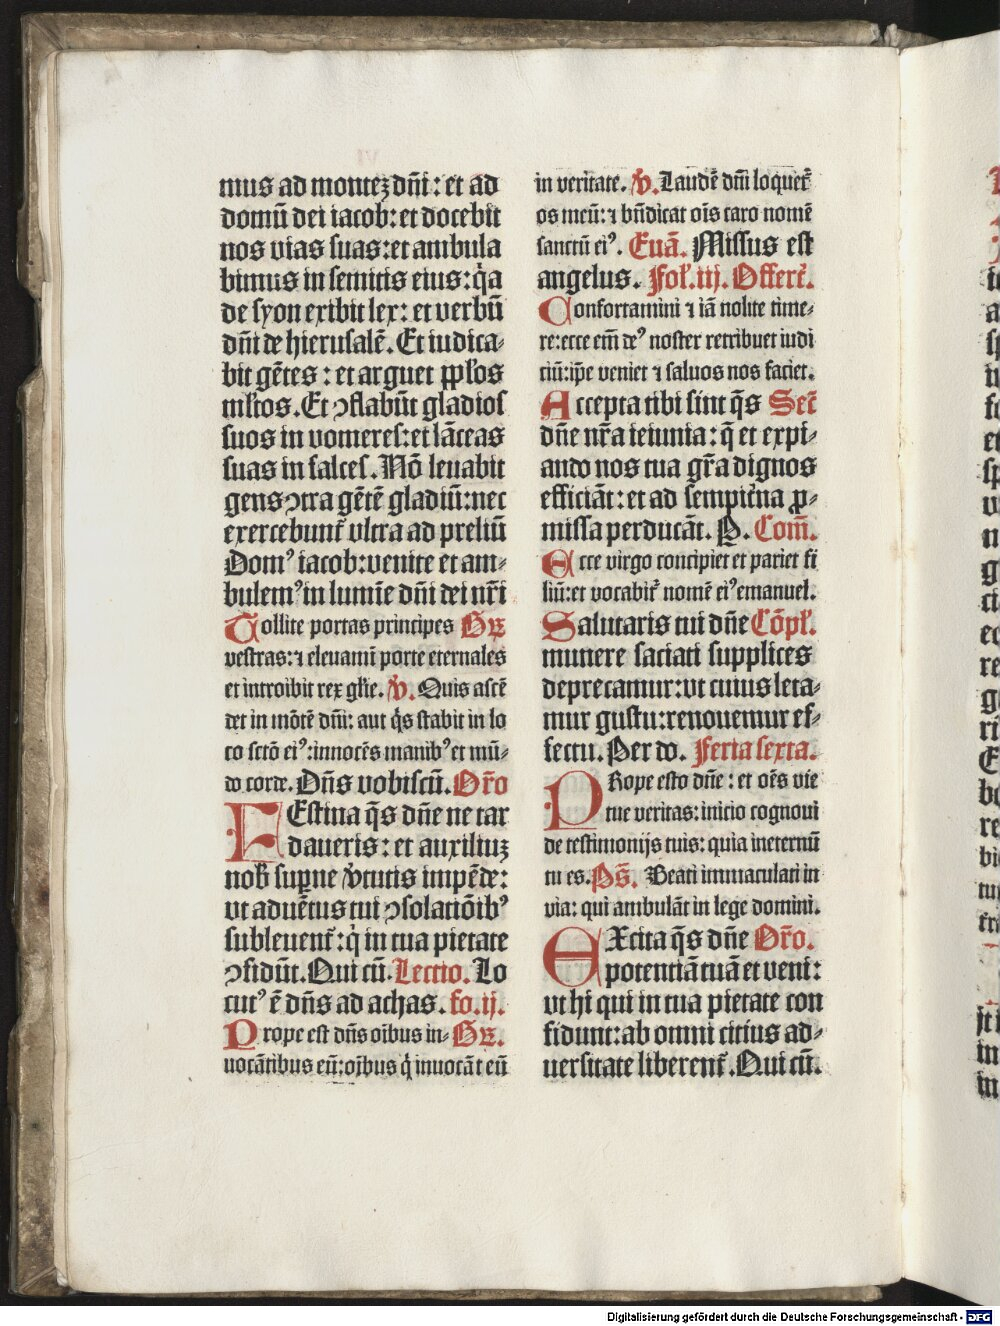 mus ad monteꝫ dñi: et ad
domū dei iacob: et docebit
nos vias suas: et ambula
bimus in semitis eius: q̇a
de syon exibit lex: et verbū
dñi de hierusalē. Et iudica⸗
bit gētes: et arguet ꝓpl'os
ml'tos. Et ꝯflabūt gladios
suos in vomeres: et lāceas
suas in falces. Nō leuabit
gens ꝯtra gētē gladiū: nec
exercebunt᷑ vltra ad preliū
Domꝰ iacob: venite et am⸗
bulemꝰ in lumīe dñi dei nr̄i
Tollite portas principes Gꝛ
vestras: ⁊ eleuamī porte eternales
et introibit rex gl'ie. v̾. Quis ascē
det in mōtē dñi: aut q̇s stabit in lo
co sctō eiꝰ: innocēs manibꝰ et mū⸗
do corde. Dñs vobiscū. Oro̅
FEstina q̄s dñe ne tar
daueris: et auxiliuꝫ
nob̄ suꝑne v̾tutis impēde:
vt aduētus tui ꝯsolatiōibꝰ
subleuent᷑: q̇ in tua pietate
ꝯfidūt. Qui cū. Lectio. Lo
cutꝰ ē dñs ad achas. fo. ij.
Prope est dñs oībus in⸗ Gꝛ.
uocātibus eū: oībus q̇ inuocāt eū
in veritate. v̾. Laudē dñi loquet᷑
os meū: ⁊ bñdicat oīs caro nomē
sanctū eiꝰ. Euā. Missus est
angelus. Fol'. iij. Offert̄.
Confortamini ⁊ iā nolite time⸗
re: ecce em̄ deꝰ noster retribuet iudi
ciū: ip̄e veniet ⁊ saluos nos faciet.
Accepta tibi sint q̄s Secr̄
dñe nr̄a ieiunia: q̄ et expi⸗
ando nos tua gr̄a dignos
efficiāt: et ad sempit̾na ꝓ⸗
missa perducāt. P. Com̄.
Ecce virgo concipiet et pariet fi
liū: et vocabit᷑ nomē eiꝰ emanuel.
Salutaris tui dñe Cōpl'.
munere saciati supplices
deprecamur: vt cuius leta⸗
mur gustu: renouemur ef⸗
fectu. Per do. Feria sexta.
PRope esto dñe: et oēs vie
tue veritas: inicio cognoui
de testimonijs tuis: quia ineternū
tu es. Ps̄. Beati immaculati in
via: qui ambulāt in lege domini.
EXcita q̄s dñe Oro̅.
potentiā tuā et veni:
vt hi qui in tua pietate con
fidunt: ab omni citius ad⸗
uersitate liberent᷑. Qui cū.
Digitalisierung gefördert durch die Deutsche Forschungsgemeinschaft - DFG